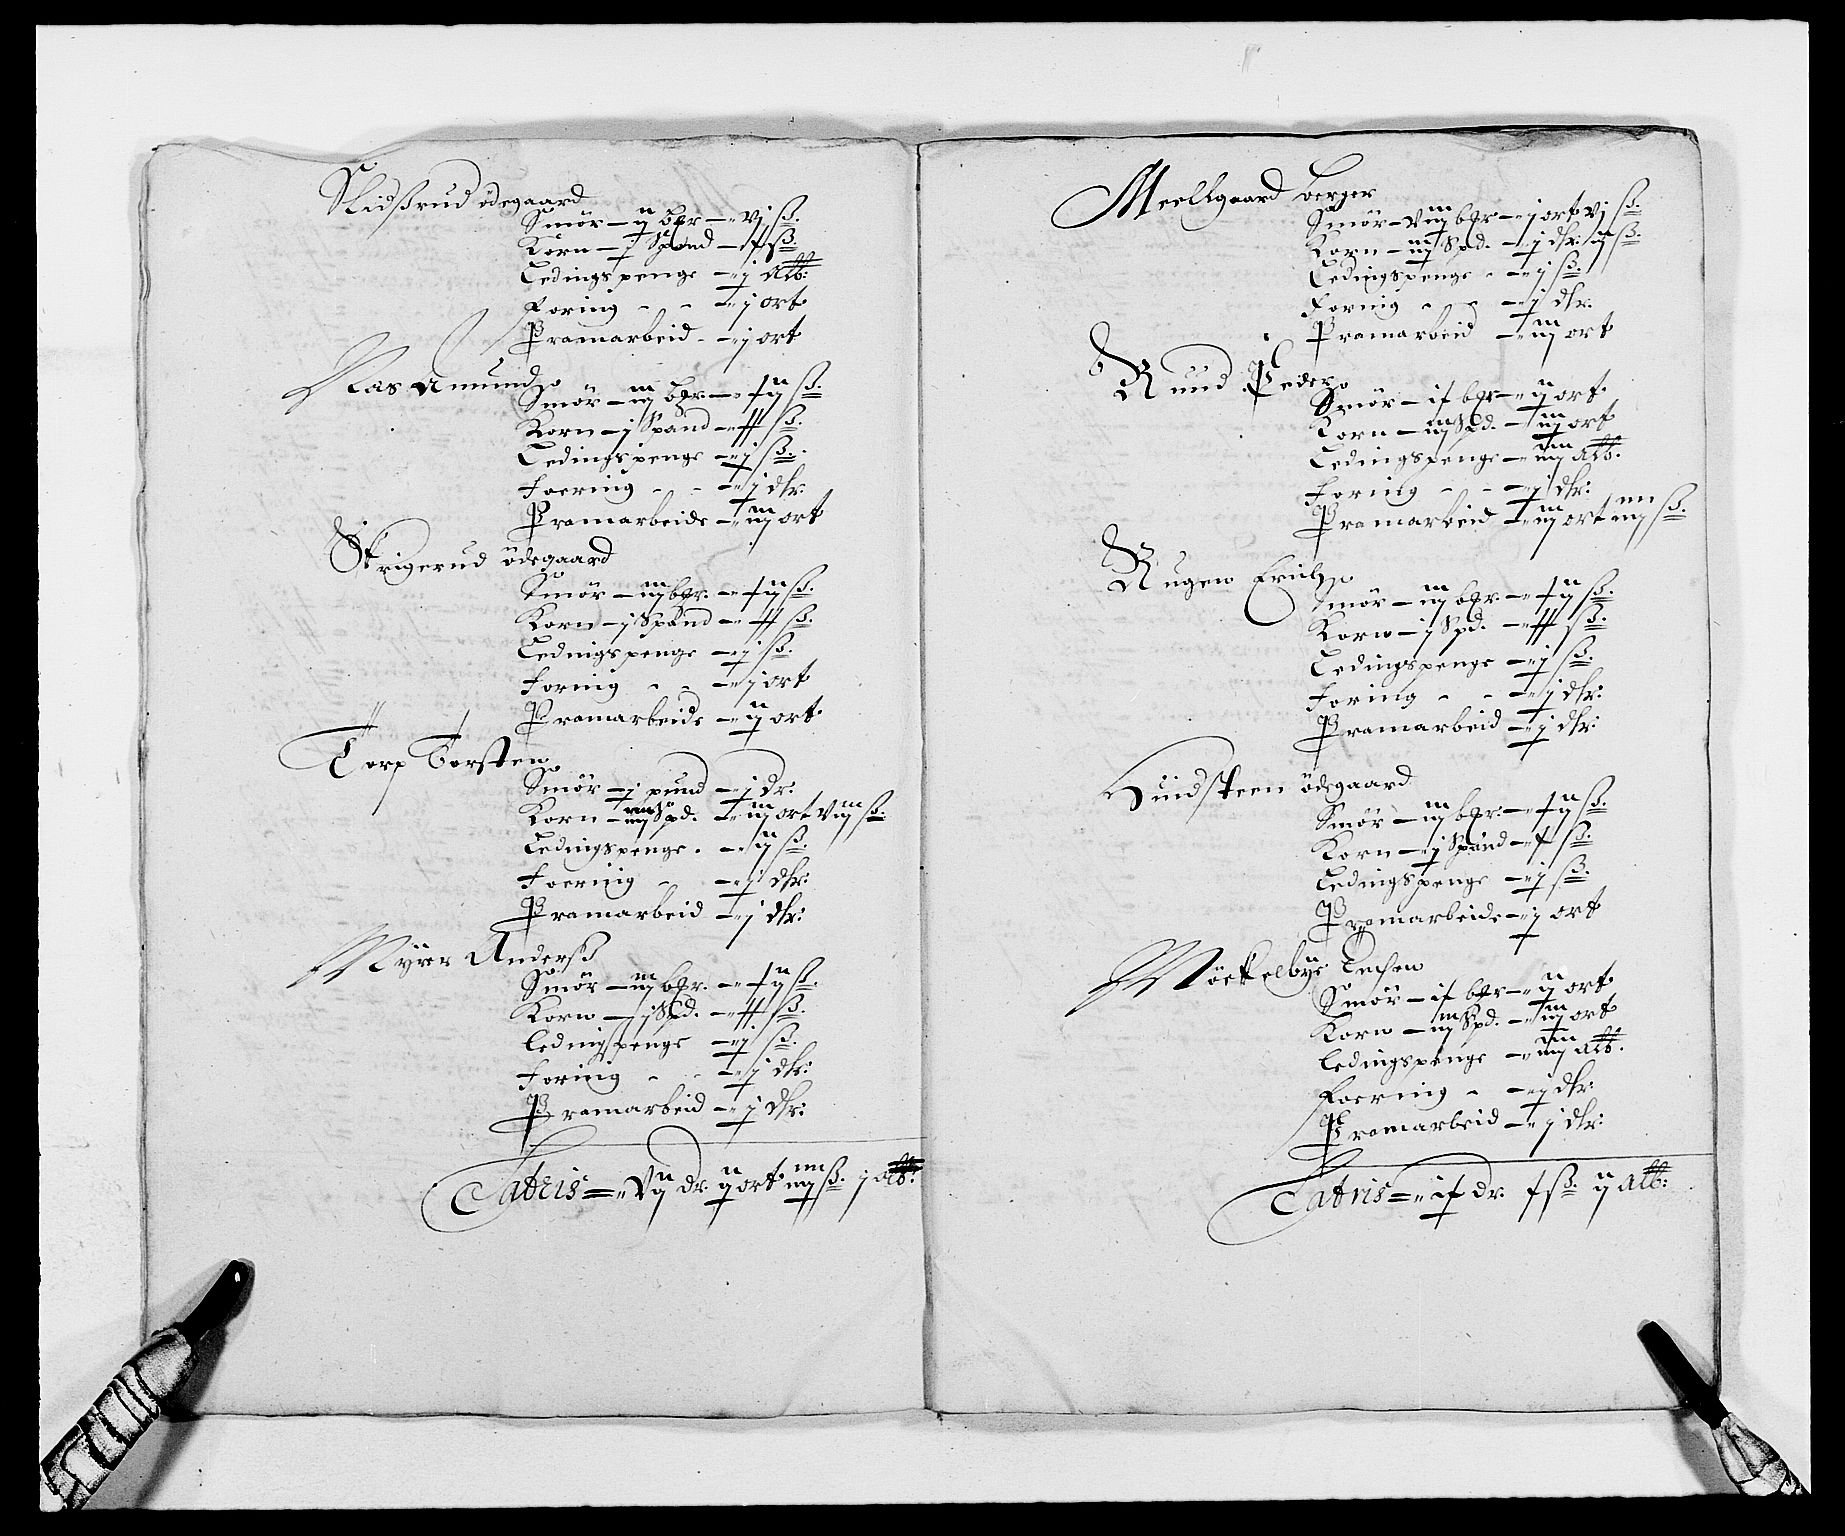 Slidßrud ödegaard
Smör – ij bpr – vj ß.
Korn – j Spand – x ß.
Ledingspenge – j alb:
Foring – – j ort
Pramarbeid – j ort
Aas Amund
Smör – iij bpr – xij ß.
Korn – j Spand – xx ß.
Ledingspenge – j ß.
Foering – – j dlr.
Pramarbeide – iij ort
Skrigerud ödegaard
Smör – iij bpr. – xij ß.
Korn – j Spand – xx ß.
Ledingspenge – j ß.
Foring – – j ort
Pramarbeide – ij ort
Torp Torsten
Smör – j pund – j dr.
Korn – iiij Spd. – iij ort viij ß.
Ledingspenge. – ij ß.
Foering – – j dlr:
Pramarbeid – j dlr:
Myrer Anderß
Smör – iij bpr. – xij ß.
Korn – j Spd. – xx ß.
Ledingspenge – j ß.
Foring – – j dlr:
Pramarbeid – j dlr:
Latris = vij dr. ij ort iiij ß. j alb:
Meelgaard Berger
Smör – viij bpr – j ort vj ß.
Korn – iij Spd. – j dlr. ij ß.
Ledingspenge – j ß.
Foring – – j dlr.
Pramarbeid – iij ort
Ruud Peder
Smör – ix bpr – ij ort
Korn – iij Spd. – iij ort
Ledingspenge – iiij alb.
Foring – – j dlr:
Pramarbeid – iij ort iiij ß.
Rugen Erich
Smör – iij bpr. – xij ß.
Korn – j Spd. – xx ß.
Ledingspenge – j ß.
Foring – – j dlr:
Pramarbeid – j dlr:
Hindsteen ödegaard
Smör – iij bpr. – xij ß.
Korn – j Spand – x ß.
Ledingspenge – j ß.
Pramarbeide – j ort
Möckelbye
Smör – ix bpr – ij ort
Korn – iij Spd. – iij ort
Ledingspenge – iiij alb.
Foering – – j dlr:
Pramarbeid – j dlr:
Latris = ix dr. x ß. ij alb: